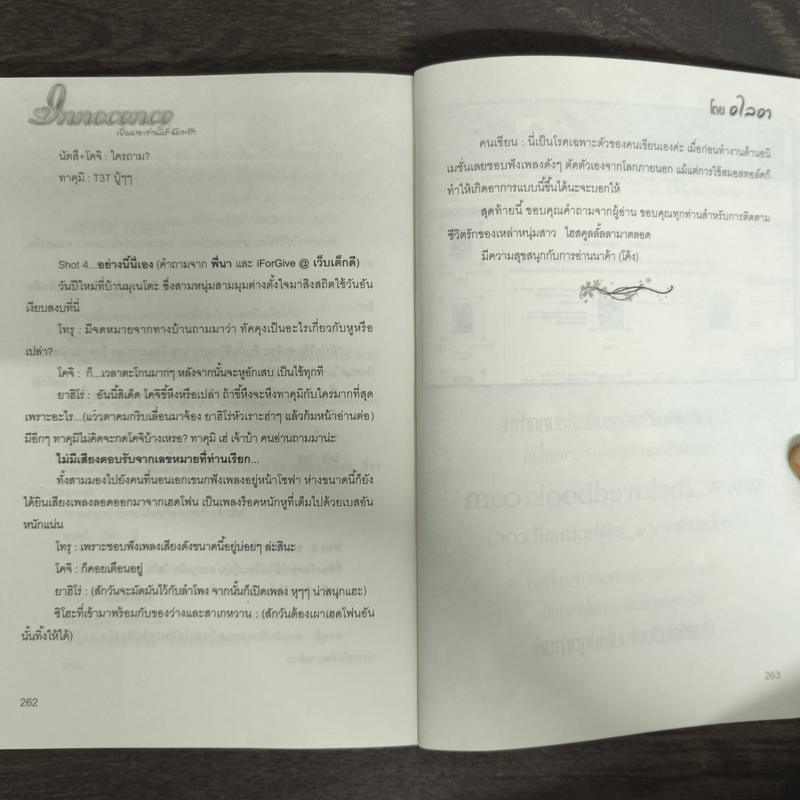 Innocence
นัตสึ+โคจิ : ใครถาม?
ทาคุมิ : T3T บู้ๆๆ
Shot 4...อย่างนี้นี่เอง (คำถามจาก พี่นา และ iForGive @ เว็บเด็กดี)
วันปีใหม่ที่บ้านมุเนโตะ ซึ่งสามหนุ่มสามมุมต่างตั้งใจมาสิงสถิตใช้วันอัน
เงียบสงบที่นี่
โทรุ : มีจดหมายจากทางบ้านถามมาว่า ทัคคุงเป็นอะไรเกี่ยวกับหูหรือ
เปล่า?
โคจิ : ก็...เวลาตะโกนมากๆ หลังจากนั้นจะหูอักเสบ เป็นไข้ทุกที
ยาฮิโร่ : อันนี้สิเด็ด โคจิขี้หึงหรือเปล่า ถ้าขี้หึงจะหึงทาคุมิกับใครมากที่สุด
เพราะอะไร...(แว่วตาคมกริบเลื่อนมาจ้อง ยาฮิโร่หัวเราะฮ่าๆ แล้วก้มหน้าอ่านต่อ)
มีอีกๆ ทาคุมิไม่คิดจะกดโคจิบ้างเหรอ? ทาคุมิ เฮ่ เจ้าบ้า คนอ่านถามมาน่ะ
ไม่มีเสียงตอบรับจากเลขหมายที่ท่านเรียก...
ทั้งสามมองไปยังคนที่นอนเอกเขนกฟังเพลงอยู่หน้าโซฟา ห่างขนาดนี้ก็ยัง
ได้ยินเสียงเพลงลอดออกมาจากเฮดโฟน เป็นเพลงร็อคหนักหูที่เต็มไปด้วยเบสอัน
หนักแน่น
โทรุ : เพราะชอบฟังเพลงเสียงดังขนาดนี้อยู่บ่อยๆ ล่ะสินะ
โคจิ : ก็คอยเตือนอยู่
ยาฮิโร่ : (สักวันจะมัดมันไว้กับลำโพง จากนั้นก็เปิดเพลง หุๆๆ น่าสนุกแฮะ)
ชิโฮะที่เข้ามาพร้อมกับของว่างและสาเกหวาน : (สักวันต้องเผาเฮดโฟนอัน
นั้นทิ้งให้ได้)
262
โดย อไลอา
คนเขียน : นี่เป็นโรคเฉพาะตัวของคนเขียนเองค่ะ เมื่อก่อนทำงานด้านอนิ
เมชั่นเลยชอบฟังเพลงดังๆ ตัดตัวเองจากโลกภายนอก แม้แต่การใช้สมอลทอล์คก็
ทำให้เกิดอาการแบบนี้ขึ้นได้นะจะบอกให้
สุดท้ายนี้ ขอบคุณคำถามจากผู้อ่าน ขอบคุณทุกท่านสำหรับการติดตาม
ชีวิตรักของเหล่าหนุ่มสาว ไฮสคูลลั้ลลามาตลอด
มีความสุขสนุกกับการอ่านนาค้า (โค้ง)
263